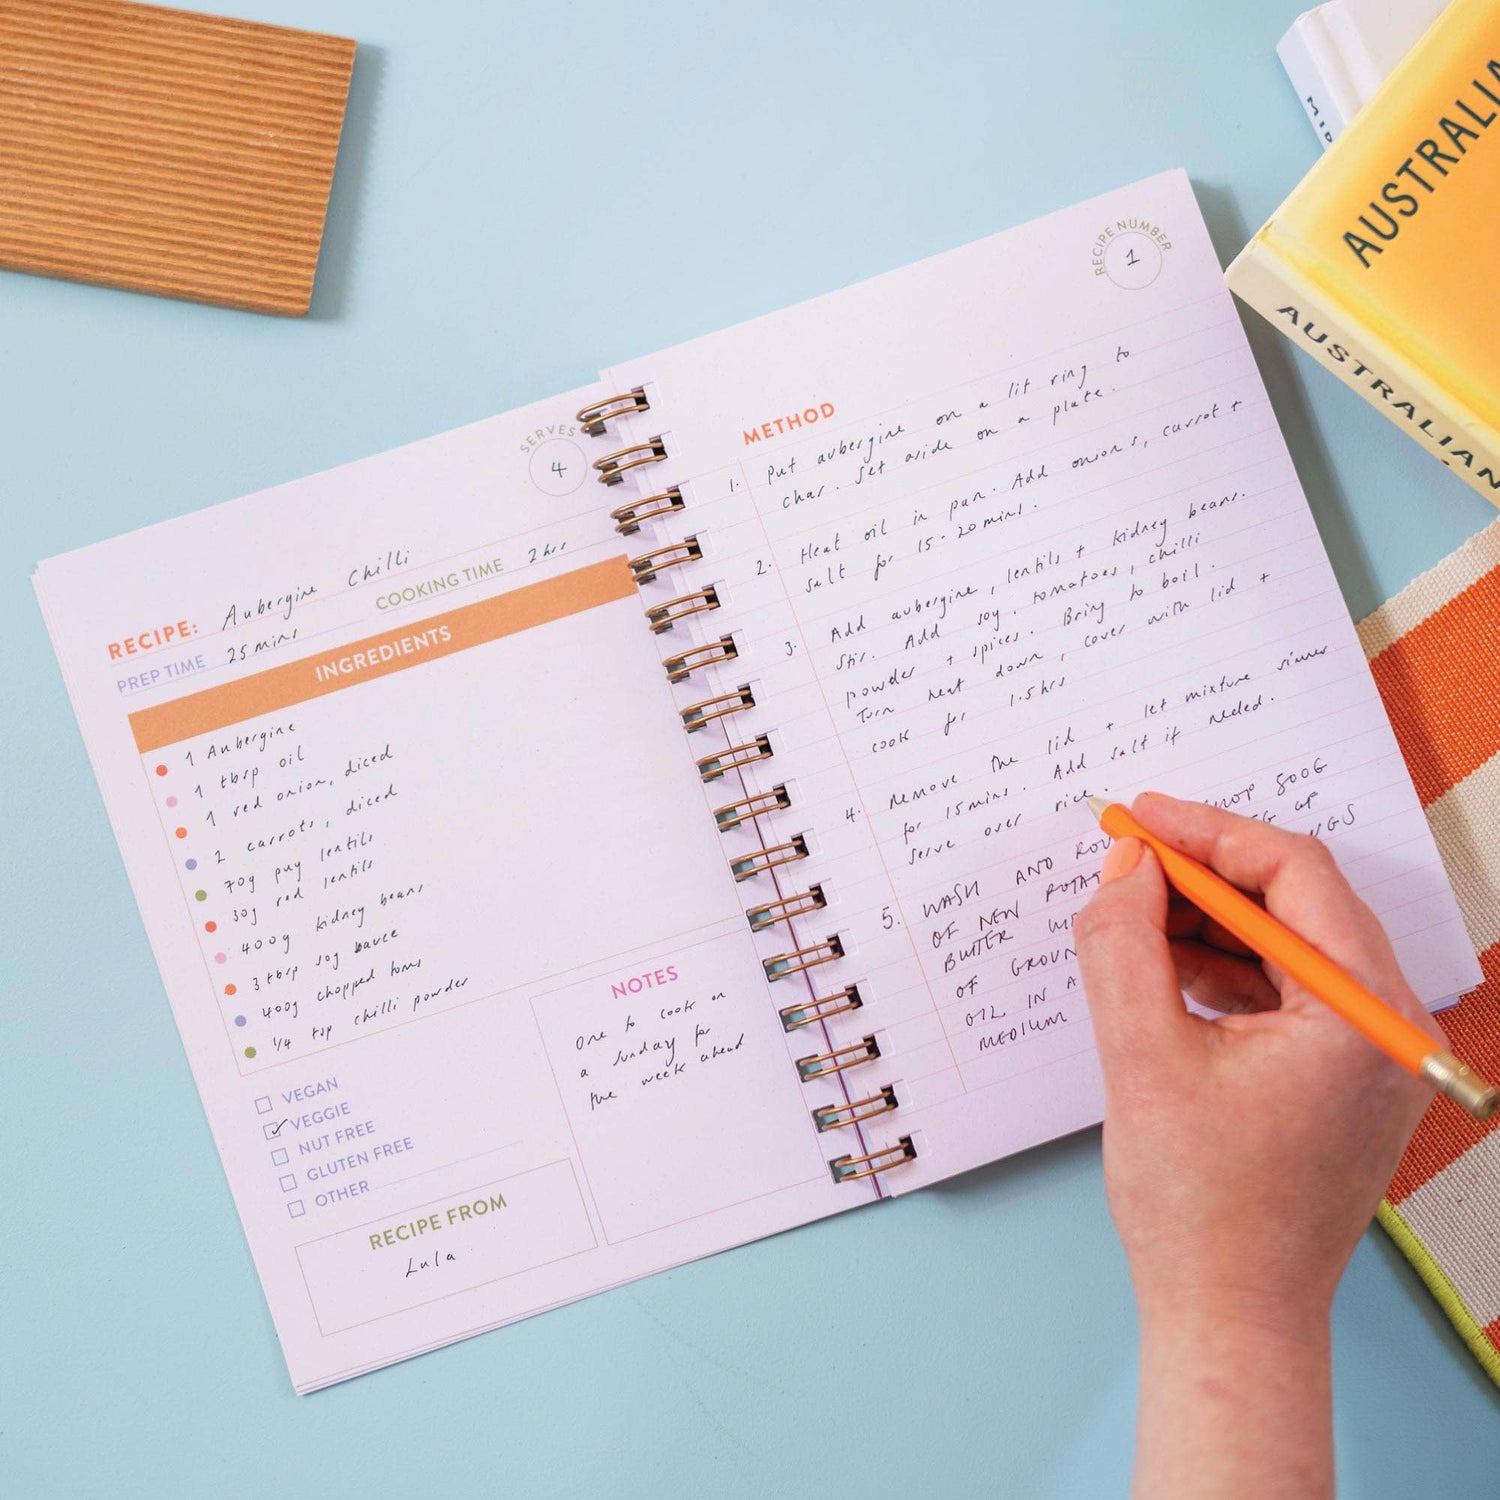 SERVES
4
RECIPE: Aubergine Chilli
PREP TIME 25 mins COOKING TIME 2 hrs
INGREDIENTS
1 Aubergine
1 tbsp oil
1 red onion, diced
2 carrots, diced
70g puy lentils
30g red lentils
400g kidney beans
3 tbsp soy sauce
400g chopped toms
1/4 tsp chilli powder
VEGAN
VEGGIE
NUT FREE
GLUTEN FREE
OTHER
RECIPE FROM
Lula
NOTES
One to cook on
a sunday for
the week ahead
RECIPE NUMBER
1
METHOD
1. Put aubergine on a lit ring to
char. Set aside on a plate.
2. Heat oil in pan. Add onions, carrot +
salt for 15-20 mins.
3. Add aubergine, lentils + kidney beans.
Stir. Add soy, tomatoes, chilli
powder + spices. Bring to boil.
Turn heat down, cover with lid +
cook for 1.5 hrs
4. Remove the lid + let mixture simmer
for 15 mins. Add salt if needed.
Serve over rice.
5. WASH AND 500G
OF NEW OF
BUTTER
OF
OIL IN A
MEDIUM
AUSTRALIA
AUSTRALIAN